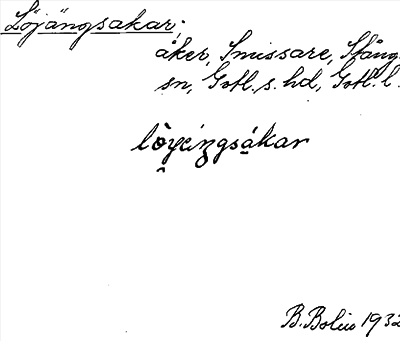 Löjängsakar;
åker, Smissare, Stång.
sn, Gotl. s. hd, Gotl. l.
B. Bolin 1932